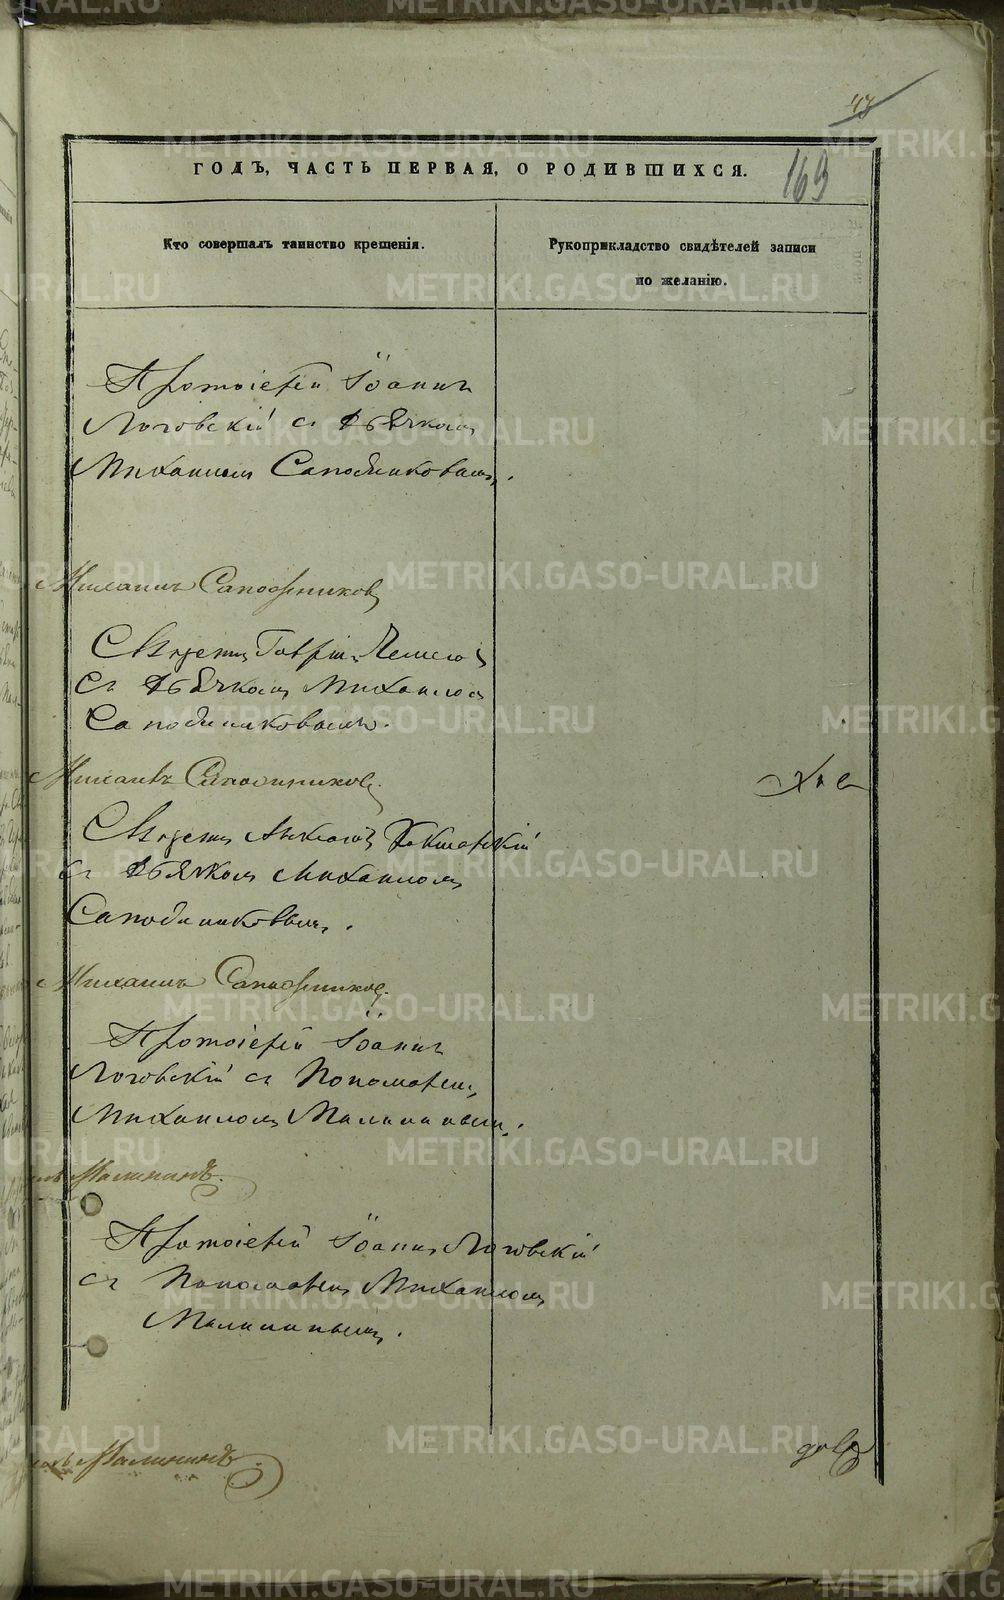 47
ГОДЪ, ЧАСТЬ ПЕРВАЯ, О РОДИВШИХСЯ.
169
Кто совершалъ таинство крещенія.
Рукоприкладство свидѣтелей записи
по желанію.
Протоіерей Іоаннъ
Логовскій съ Дьячкомъ
Михаиломъ Сапожниковымъ.
Михаилъ Сапожниковъ
Священ. Гавріилъ
съ Дьячкомъ Михаиломъ
Сапожниковымъ.
Михаилъ Сапожниковъ.
Священ.
съ Дьячкомъ Михаиломъ
Сапожниковымъ.
Михаилъ Сапожниковъ.
Протоіерей Іоаннъ
Логовскій съ Пономаремъ
Михаиломъ Малининымъ.
Малининъ.
Протоіерей Іоаннъ Логовскій
съ Пономаремъ Михаиломъ
Малининымъ.
Малининъ.
METRIKI.GASO-URAL.RU